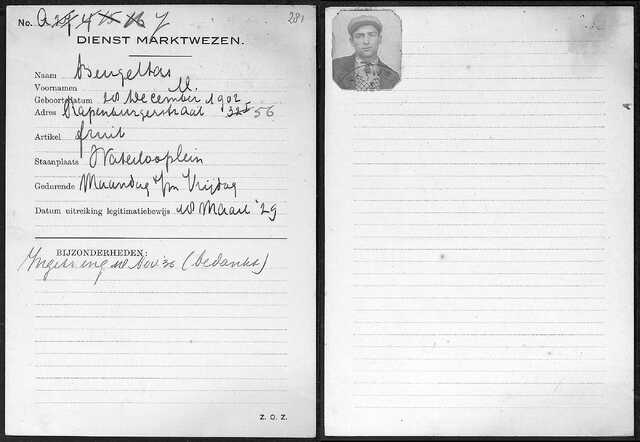 No. A 7 281
DIENST MARKTWEZEN.
Naam Beugeltas
Voornamen M.
Geboortedatum 28 December 1902
Adres Rapenburgerstraat 32 I 56
Artikel fruit
Staanplaats Waterlooplein
Gedurende Maandag t/m Vrijdag
Datum uitreiking legitimatiebewijs 28 Maart '29
BIJZONDERHEDEN:
Nov '30 (bedankt)
Z. O. Z.